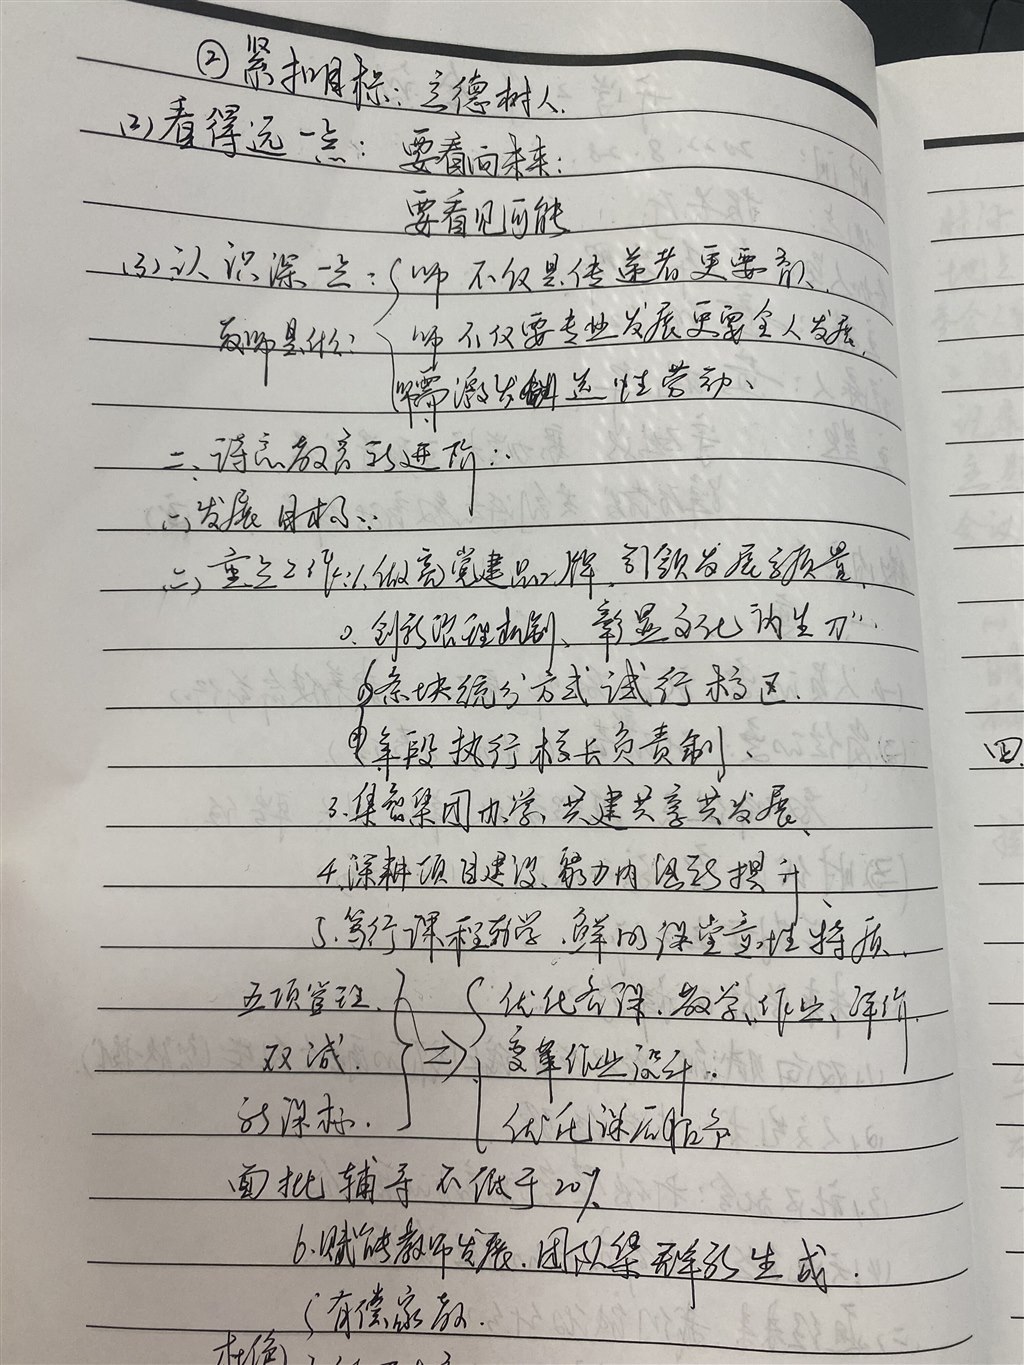 ②紧扣目标：立德树人.
(2)看得远一点：要看向未来：
要看见可能
(3)认识深一点：师不仅是传递者更要育人.
教师是什么：师不仅要专业发展更要全人发展.
师需激发创造性劳动、
二、诗意教育新进阶：
(一)发展目标：
(二)重点工作：1.做亮党建品牌，引领发展高质量.
2.创新治理机制、彰显文化内生力
条块统分方式试行校区.
年段执行校长负责制、
3.集智集团办学、共建共享共发展、
4.深耕项目建设、聚力内涵新提升、
5.笃行课程教学、鲜明课堂意性特质.
五项管理.
双减.
新课标.
优化备课、教学、作业、评价.
变革作业设计：
优化课后服务
面批辅导不低于20%
6.赋能教师发展、团队梁群新生成.
有偿家教.
杜绝